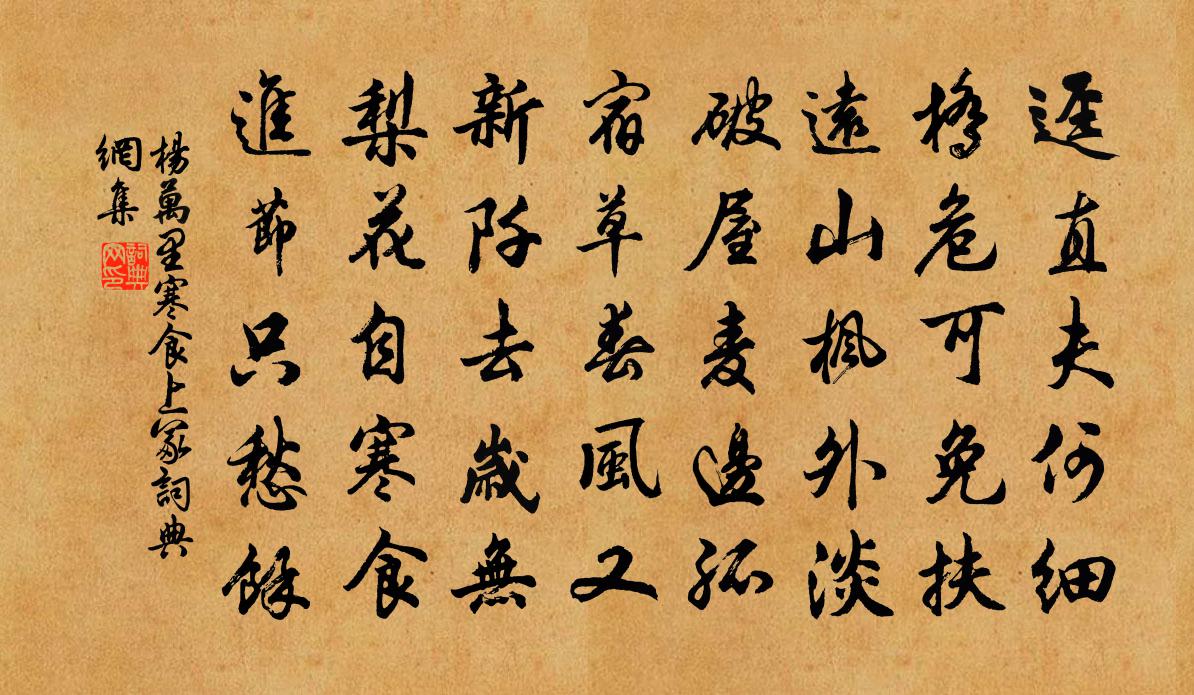 逕直夫何細
橋危可免扶
遠山楓外淡
破屋麦邊孤
宿草春風又
新阡去歲無
梨花自寒食
進節只愁餘
楊萬里寒食上冢詞典
網集
詞典
网印